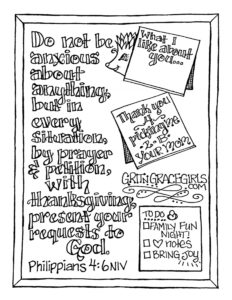 Do not be
anxious
about
anything,
but in
every
situation,
by prayer
& petition,
with
thanksgiving,
present your
requests to
God.
Philippians 4:6 NIV
What I
like about
you...
Thank you
4
picking me
2 B
your mom
GRITSNGRACEGIRLS
.COM
TO DO
FAMILY FUN
NIGHT!
♡ notes
BRING JOY